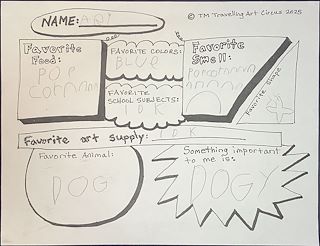 NAME: ARI
© TM Travelling Art Circus 2025
Favorite Food:
POP
Favorite Colors:
BLUE
Favorite School Subjects:
IDK
Favorite Smell:
Favorite Shape
Favorite art supply: IDK
Favorite Animal:
DOG
Something important to me is:
DOGY